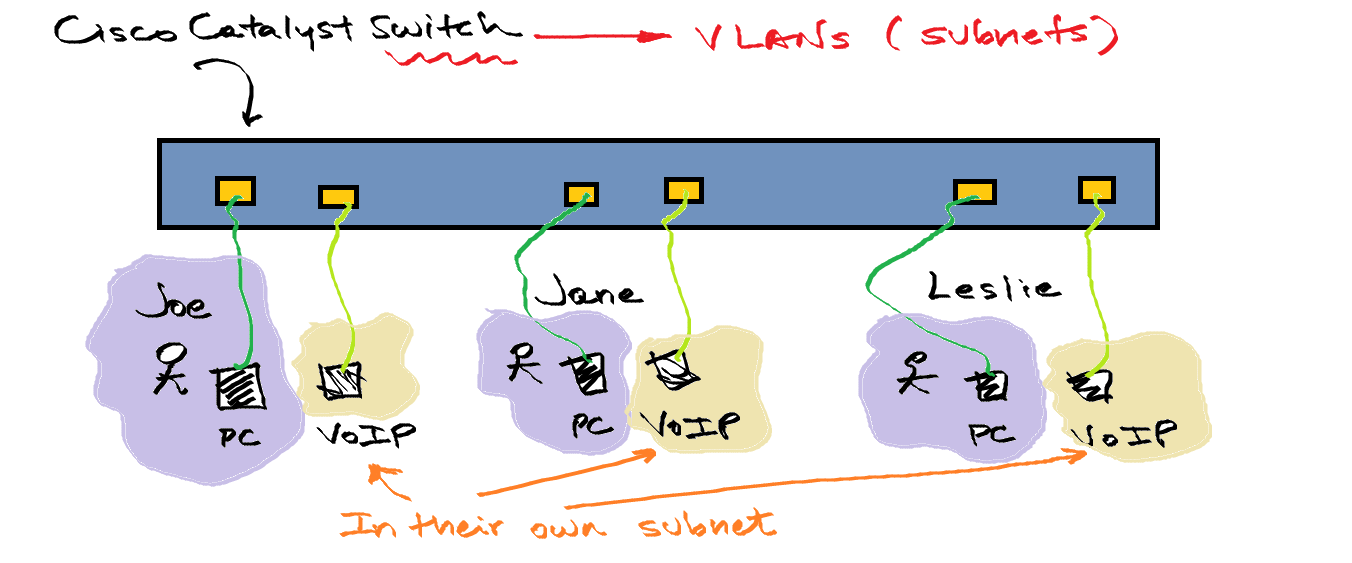 Cisco Catalyst Switch → VLANs (subnets)
Joe
Jane
Leslie
PC
VoIP
PC
VoIP
PC
VoIP
In their own subnet